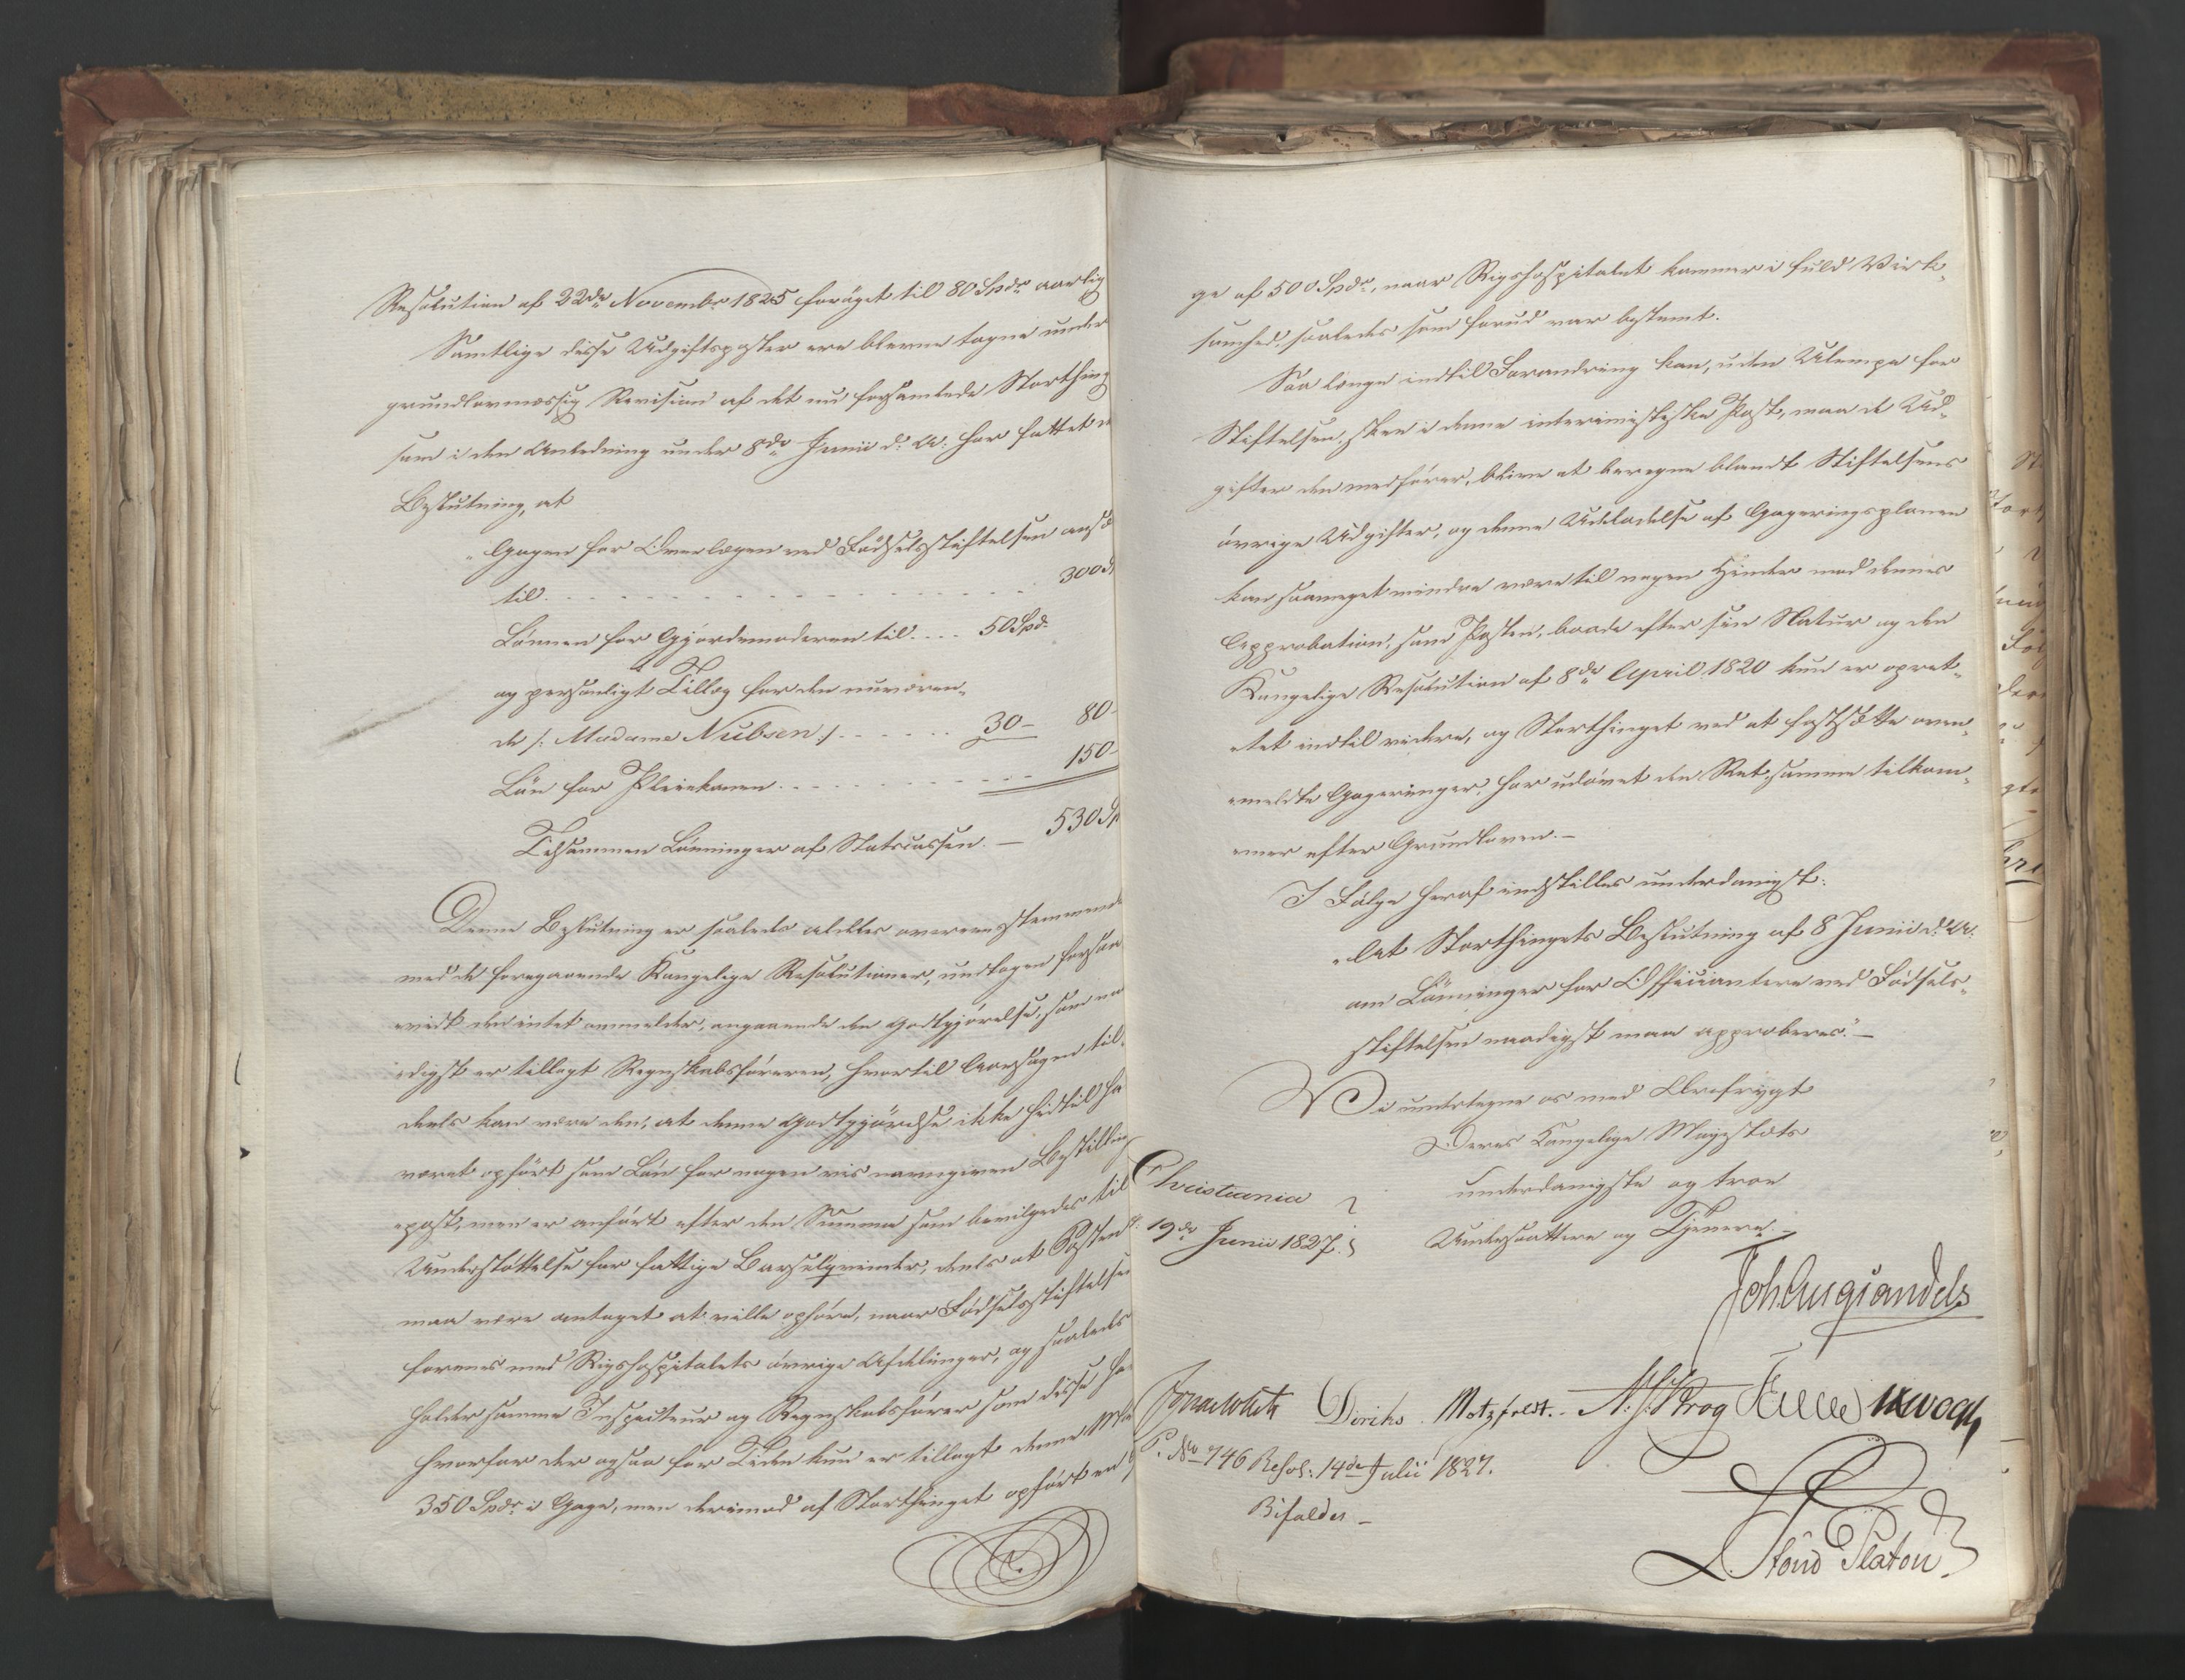 Resolution af 22de Novembr 1825 forøget til 80 Spdr aarlig
Samtlige disse Udgiftsposter ere blevne tagne under
grundlovmæssig Revision af det nu forsamlede Storthing
som i den Anledning under 8de Junii d: A: har fattet
Beslutning, at
"Gagen for Overlægen ved Fødselsstiftelsen
til 300
Lønnen for Gjordemoderen til .... 50 Spd.
og personligt Tillæg for den nuværen-
de /: Madame Nielsen :/ ...... 30 - 80 -
Løn for Pleiekonen ........ 150 -
Tilsammen Lønninger af Statscassen. — 530 Sp
Denne Beslutning er saaledes aldeles overeensstemmende
med de foregaaende Kongelige Resolutioner, undtagen forsaa
vidt den intet ommelder, angaaende den Godtgjørelse, som
digst er tillagt Regnskabsføreren, hvortil Aarsagen til-
deels kan være den, at denne Godtgjørelse ikke hidtil ha
været opført som Løn for nogen vis navngiven Bestilling
spost, men er anført efter den Summa som bevilgedes til
Understøttelse for fattige Barselqvinder, deels at Posten
maa være antaget at ville ophøre, naar Fødselsstiftelsen
forenes med Rigshospitalets øvrige Afdelinger, og saaledes
holder samme Inspecteur og Regnskabsfører som disse ha
hvorfor der ogsaa for Tiden kun er tillagt denne
350 Spdr i Gage, men derimod af Storthinget opført en
ge af 500 Spdr, naar Rigshospitalet kommer i fuld Virk-
somhed, saaledes som forud var bestemt.
Saa længe indtil Forandring kan, uden Ulempe for
Stiftelsen, skee i denne interimistiske Post, maa de Ud-
gifter den medfører, blive at beregne blandt Stiftelsens
øvrige Udgifter, og denne Udeladelse af Gageringsplanen
kan saameget mindre være til nogen Hinder med dennes
Approbation, som Posten, baade efter sin Natur og den
Kongelige Resolution af 8de April 1820 kun er opret-
tet indtil videre, og Storthinget ved at fastsætte oven-
meldte Gageringer, har udøvet den Ret, samme tilkom-
mer efter Grundloven. —
I Følge heraf indstilles underdanigst:
"at Storthingets Beslutning af 8 Junii d: A:
om Lønninger for Officianterne ved Fødsels-
stiftelsen naadigst maa approberes." —
Vi undertegne os med Ærefrygt
Deres Kongelige Majestæts
underdanigste og troe
Undersaatter og Tjenere. —
Christiania
d: 19de Junii 1827.
Joh. Aug. Sandels
Jonas Collett Diriks. Motzfeldt. — M. J. Krog Vogt
P. No 746 Resol: 14de Julii 1827.
Bifaldes —
v. Stoud Platou